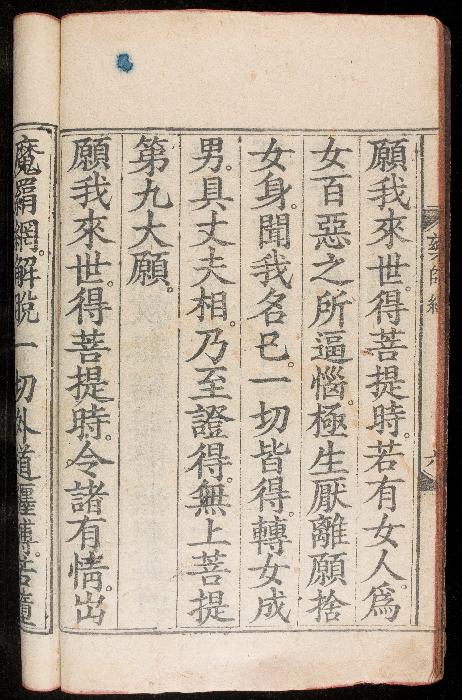 願我來世。得菩提時。若有女人。爲
女百惡之所逼惱。極生厭離。願捨
女身。聞我名已。一切皆得。轉女成
男。具丈夫相。乃至證得。無上菩提
第九大願。
願我來世。得菩提時。令諸有情。出
魔羂網。解脫一切外道纏縛。若墮